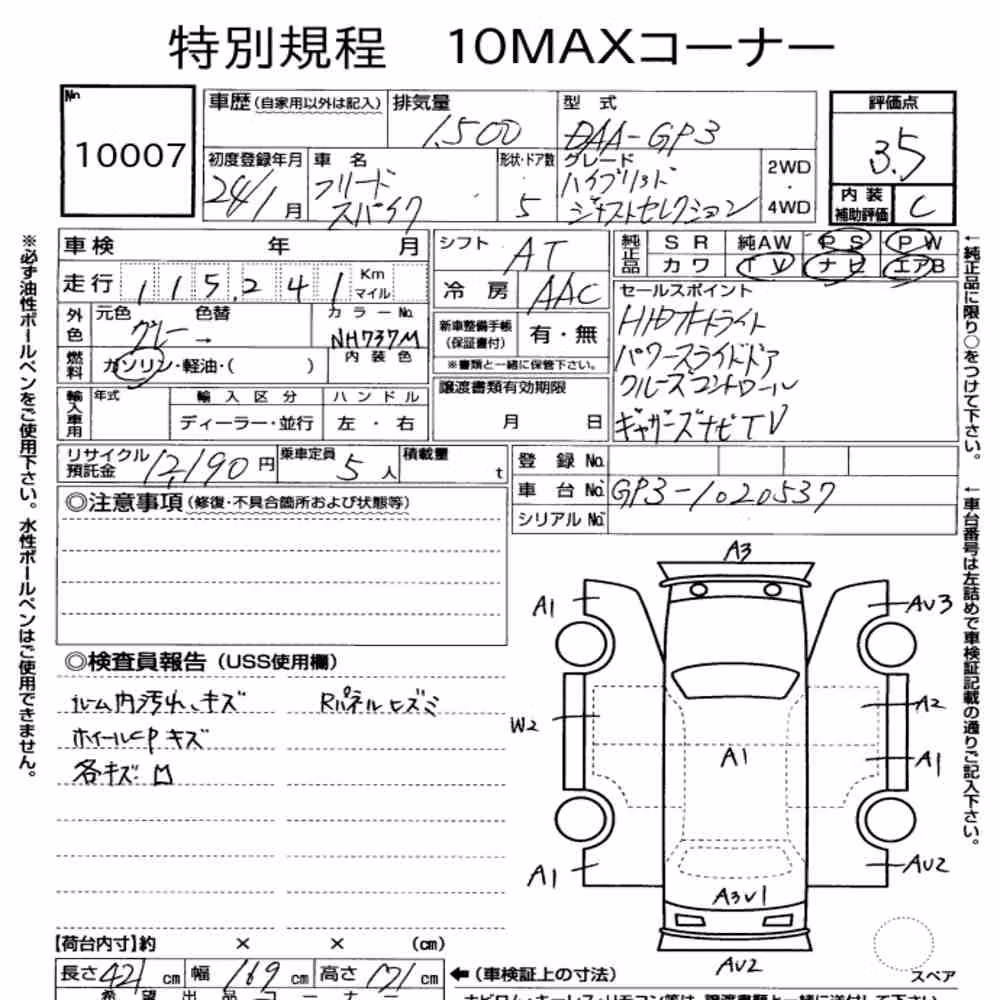 特別規程 10MAXコーナー
No
10007
車歴(自家用以外は記入) 排気量 1,500 型式 DAA-GP3
評価点 3.5
初度登録年月 24/1月 車名 フリード スパイク 形状・ドア数 5 グレード ハイブリッド ジャストセレクション 2WD・4WD
内装補助評価 C
車検 年 月
シフト AT
純正品 SR 純AW PS PW
カワ TV ナビ エアB
走行 115,241 Km マイル
冷房 AAC
セールスポイント
HIDオートライト
パワースライドドア
クルーズコントロール
ギャザーズナビTV
外色 元色 グレー → 色替 カラーNo. NH737M
内装色
新車整備手帳(保証書付) 有・無
※書類と一緒に保管下さい。
燃料 ガソリン・軽油・( )
譲渡書類有効期限
月 日
輸入車用 年式 輸入区分 ハンドル
ディーラー・並行 左・右
リサイクル預託金 12,190円 乗車定員 5人 積載量 t
登録No.
車台No. GP3-1020537
シリアルNo.
◎注意事項(修復・不具合箇所および状態等)
◎検査員報告(USS使用欄)
ルーム内汚れ、キズ Rパネルヒズミ
ホイールCPキズ
各キズ凹
A3
A1
AU3
W2
A2
A1
A1
A1
AU2
A3U1
AU2
スペア
【荷台内寸】約 × × (cm)
長さ 421 cm 幅 169 cm 高さ 171 cm
←(車検証上の寸法)
希望出品コーナー
※必ず油性ボールペンをご使用下さい。水性ボールペンはご使用できません。
←純正品に限り○をつけて下さい。
←車台番号は左詰めで車検証記載の通りご記入下さい。